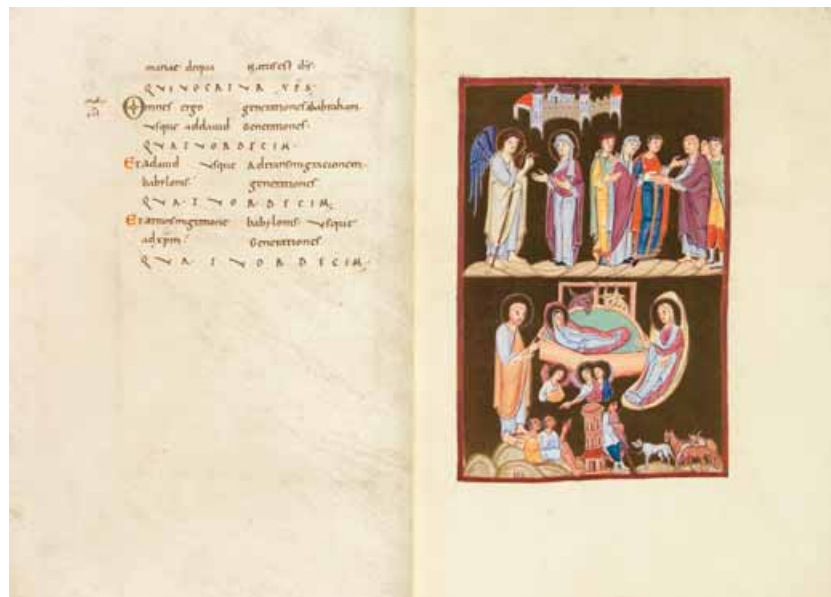 mariae dequa natus est ihs
QUIVOCATUR XPS
Omnes ergo generationes ababraham
usque addauid Generationes
QUATUORDECIM
Etadauid usque Adtransmigrationem
babylonis generationes
QUATUORDECIM
Etatransmigratione babylonis usque
adxpm Generationes
QUATUORDECIM